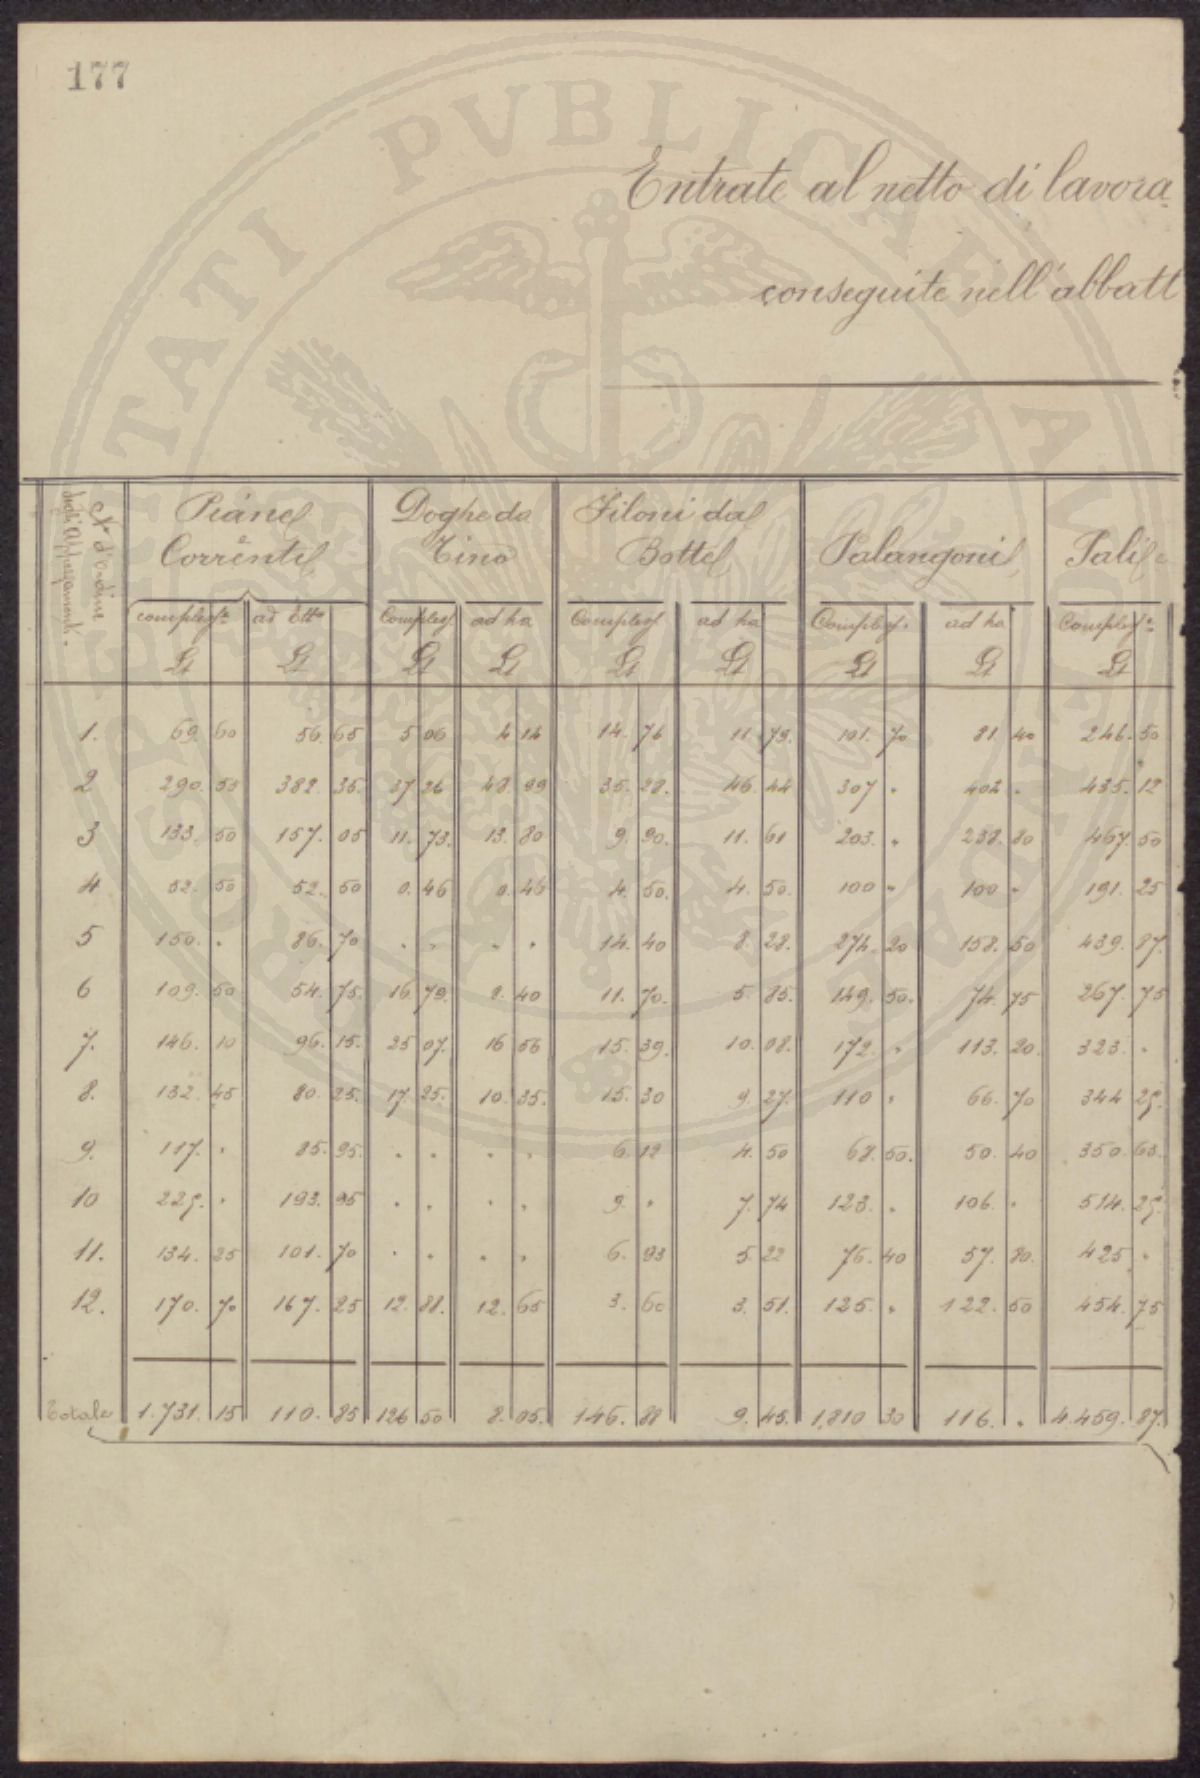 177
PVBLICAE
Entrate al netto di lavora
conseguite nell'abbatt
N° d'ordine
degli Appezzamenti.
Piane Correnti
Doghe da Tino
Filoni da Botte
Palangoni
Pali e
compless.° ad Ett° Compless. ad ha Compless. ad ha Compless. ad ha Compless.°
Lt Lt Lt Lt Lt Lt Lt Lt Lt
1. 69. 60 56. 65 5 06 4 14 14. 76 11. 79. 101. 70 81. 40 246. 50
2 290. 55 382. 35. 37 26 48. 99 35. 28. 46. 44 307 " 404 " 435. 12
3 133. 50 157. 05 11. 73. 13. 80 9. 90. 11. 61 203. " 238. 80 467. 50
4 52. 50 52. 50 0. 46 0. 46 4. 50. 4. 50. 100 " 100 " 191. 25
5 150. " 86. 70 " " " " 14. 40 8. 28. 274. 20 158. 50 439. 87.
6 109. 50 54. 75. 16. 79. 8. 40 11. 70. 5. 85. 149. 50. 74. 75 267. 75
7. 146. 10 96. 15. 25 07. 16 56 15. 39. 10. 08. 172. " 113. 20. 323. "
8. 132. 45 80. 25. 17 25. 10. 35. 15. 30 9. 27. 110 " 66. 70 344 25.
9. 117. " 85. 95. " " " " 6. 12 4. 50 68. 50. 50. 40 350. 63.
10 225. " 193. 95 " " " " 9. " 7. 74 123. " 106. " 514. 25.
11. 134. 25 101. 70 " " " " 6. 93 5. 22 76. 40 57. 80. 425 "
12. 170. 70 167. 25 12. 88. 12. 65 3. 60 3. 51. 125. " 122. 50 454. 75
Totale 1.731. 15 110. 85 126 50 8. 05. 146. 88 9. 45. 1,810 30 116. " 4.459. 87.